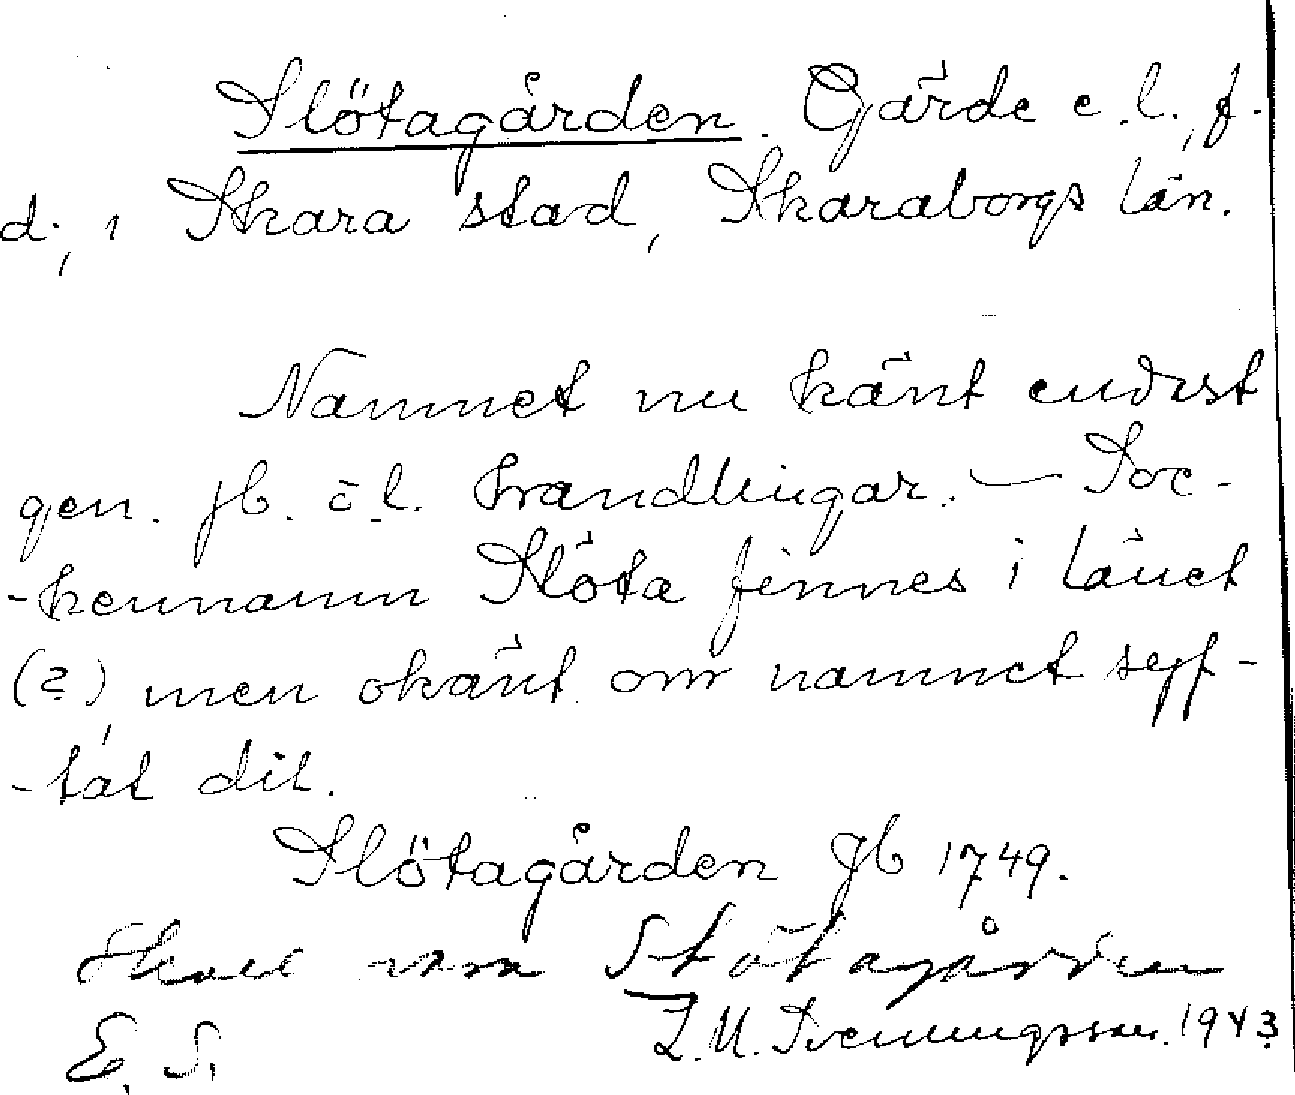 Slötagården. Gärde e.l., f.
d., i Skara stad, Skaraborgs län.
Namnet nu känt endast
gen. jb. o.l. handlingar. — Soc-
-kennamn Slöta finnes i länet
(?), men okänt om namnet syf-
-tat dit.
Slötagården Jb 1749.
Skall vara Stötagården
E. S.
L. M. Svenungsson. 1943